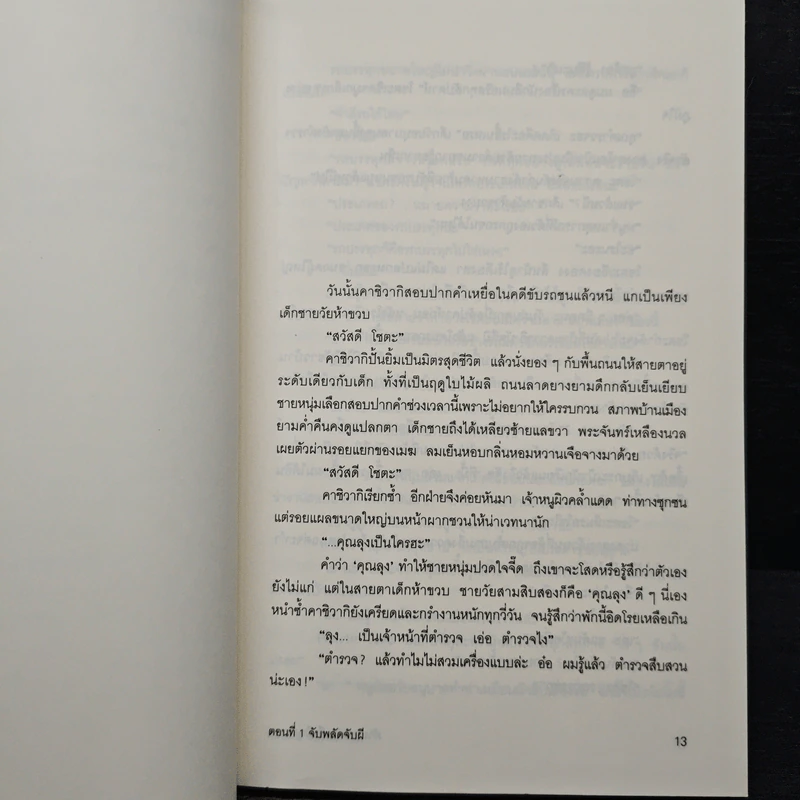 วันนั้นคาชิวากิสอบปากคำเหยื่อในคดีขับรถชนแล้วหนี แกเป็นเพียง
เด็กชายวัยห้าขวบ
“สวัสดี โชตะ”
คาชิวากิปั้นยิ้มเป็นมิตรสุดชีวิต แล้วนั่งยอง ๆ กับพื้นถนนให้สายตาอยู่
ระดับเดียวกับเด็ก ทั้งที่เป็นฤดูใบไม้ผลิ ถนนลาดยางยามดึกกลับเย็นเยียบ
ชายหนุ่มเลือกสอบปากคำช่วงเวลานี้เพราะไม่อยากให้ใครรบกวน สภาพบ้านเมือง
ยามค่ำคืนคงดูแปลกตา เด็กชายถึงได้เหลียวซ้ายแลขวา พระจันทร์เหลืองนวล
เผยตัวผ่านรอยแยกของเมฆ ลมเย็นหอบกลิ่นหอมหวานเจือจางมาด้วย
“สวัสดี โชตะ”
คาชิวากิเรียกซ้ำ อีกฝ่ายจึงค่อยหันมา เจ้าหนูผิวคล้ำแดด ท่าทางซุกซน
แต่รอยแผลขนาดใหญ่บนหน้าผากชวนให้น่าเวทนานัก
“...คุณลุงเป็นใครฮะ”
คำว่า ‘คุณลุง’ ทำให้ชายหนุ่มปวดใจจี๊ด ถึงเขาจะโสดหรือรู้สึกว่าตัวเอง
ยังไม่แก่ แต่ในสายตาเด็กห้าขวบ ชายวัยสามสิบสองก็คือ ‘คุณลุง’ ดี ๆ นี่เอง
หนำซ้ำคาชิวากิยังเครียดและกรำงานหนักทุกวี่วัน จนรู้สึกว่าพักนี้อิดโรยเหลือเกิน
“ลุง... เป็นเจ้าหน้าที่ตำรวจ เอ่อ ตำรวจไง”
“ตำรวจ? แล้วทำไมไม่สวมเครื่องแบบล่ะ อ๋อ ผมรู้แล้ว ตำรวจสืบสวน
น่ะเอง!”
ตอนที่ 1 จับพลัดจับผี
13